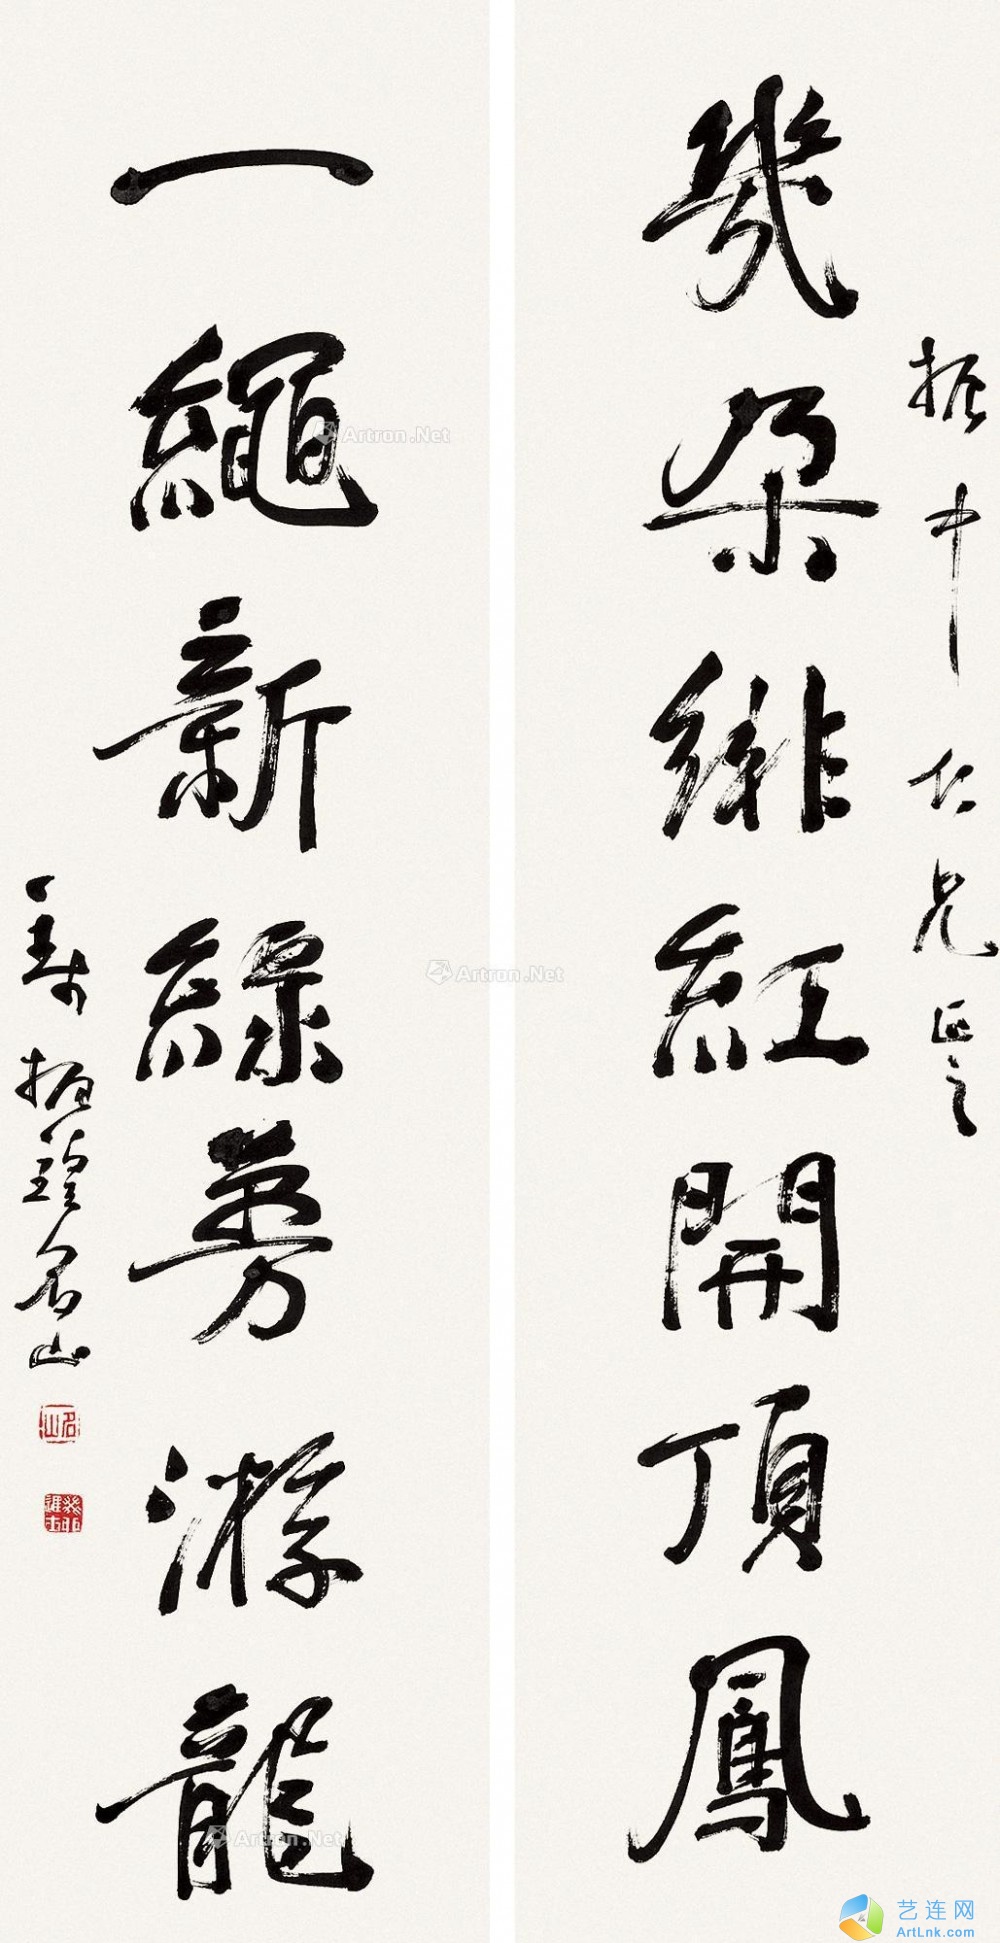 振中仁兄正
幾朵緋紅開頂鳳
一繩新綠游龍
振鍠名山
名山
Artron.Net
Artron.Net
Artron.Net
艺连网
ArtLnk.com